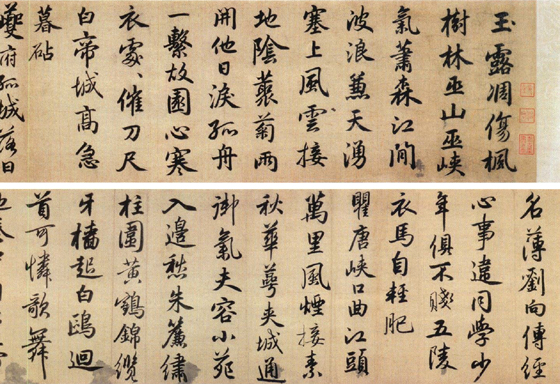 玉露凋傷楓
樹林巫山巫峽
氣蕭森江間
波浪兼天湧
塞上風雲接
地陰藂菊兩
開他日淚孤舟
一繫故園心寒
衣處〻催刀尺
白帝城高急
暮砧
夔府孤城落日
名薄劉向傳經
心事違同學少
年俱不賤五陵
衣馬自輕肥
瞿唐峽口曲江頭
萬里風煙接素
秋華萼夾城通
御氣夫容小苑
入邊愁朱簾繡
柱圍黃鶴錦纜
牙檣起白鷗迴
首可憐歌舞